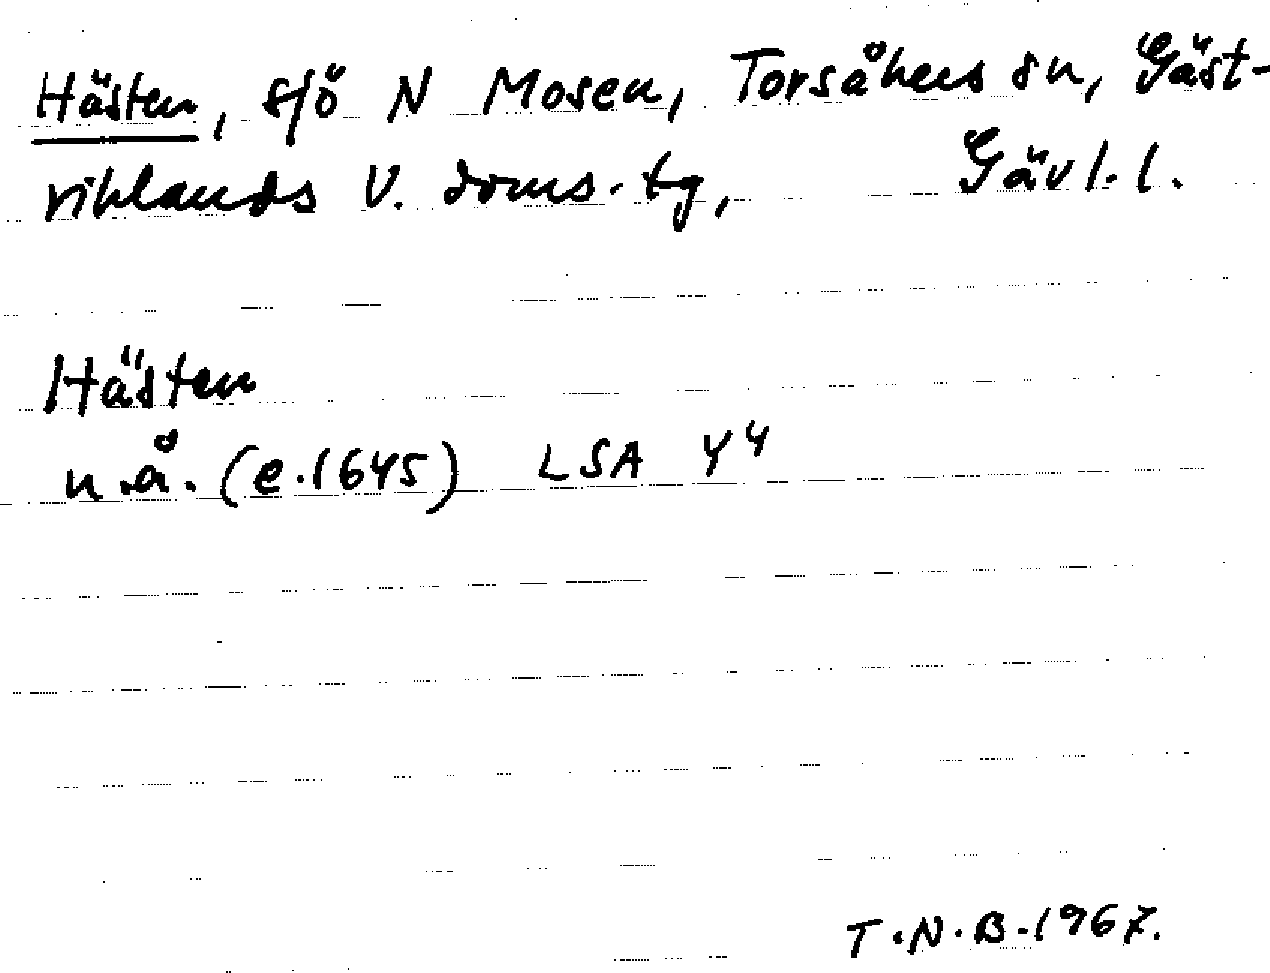 Hästen, sjö N Mosen, Torsåkers sn, Gäst-
riklands V. doms. tg, Gävl. l.
Hästen
u.å. (e. 1645) LSA Y4
T.N.B. 1967.